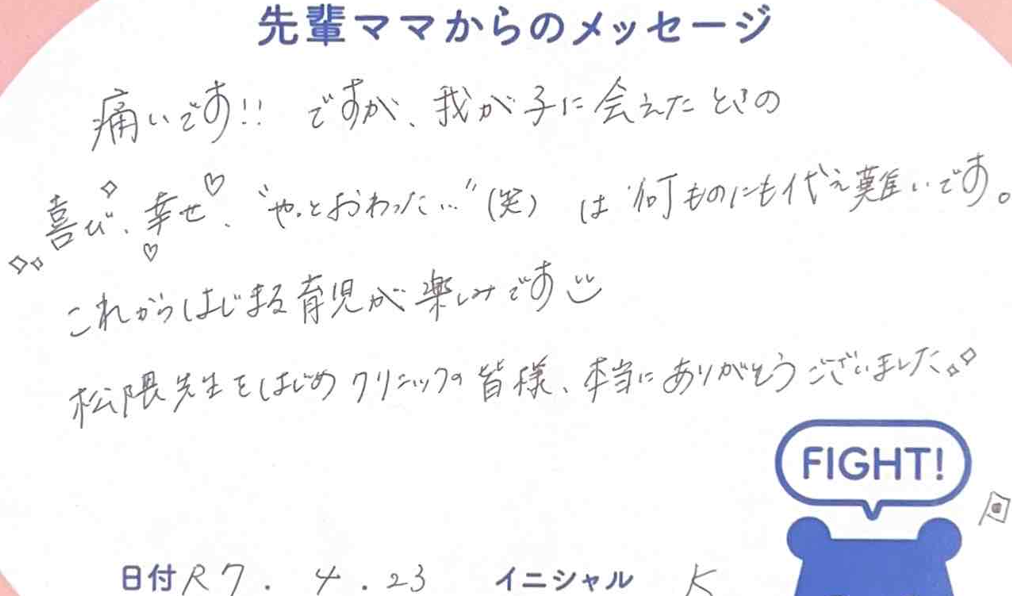 先輩ママからのメッセージ
痛いです!! ですが、我が子に会えたときの
喜び、幸せ、"やっとおわったぁ…"(笑) は何ものにも代え難いです。
これからはじまる育児が楽しみです
松隈先生をはじめクリニックの皆様、本当にありがとうございました。
FIGHT!
日付 R7. 4. 23 イニシャル K